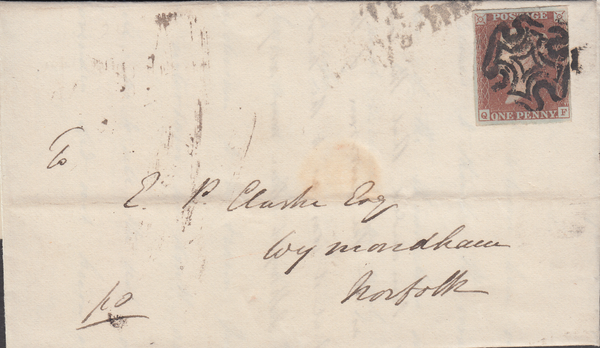 POSTAGE
Q ONE PENNY F
To
E. P. Clarke Esq
Wymondham
Norfolk